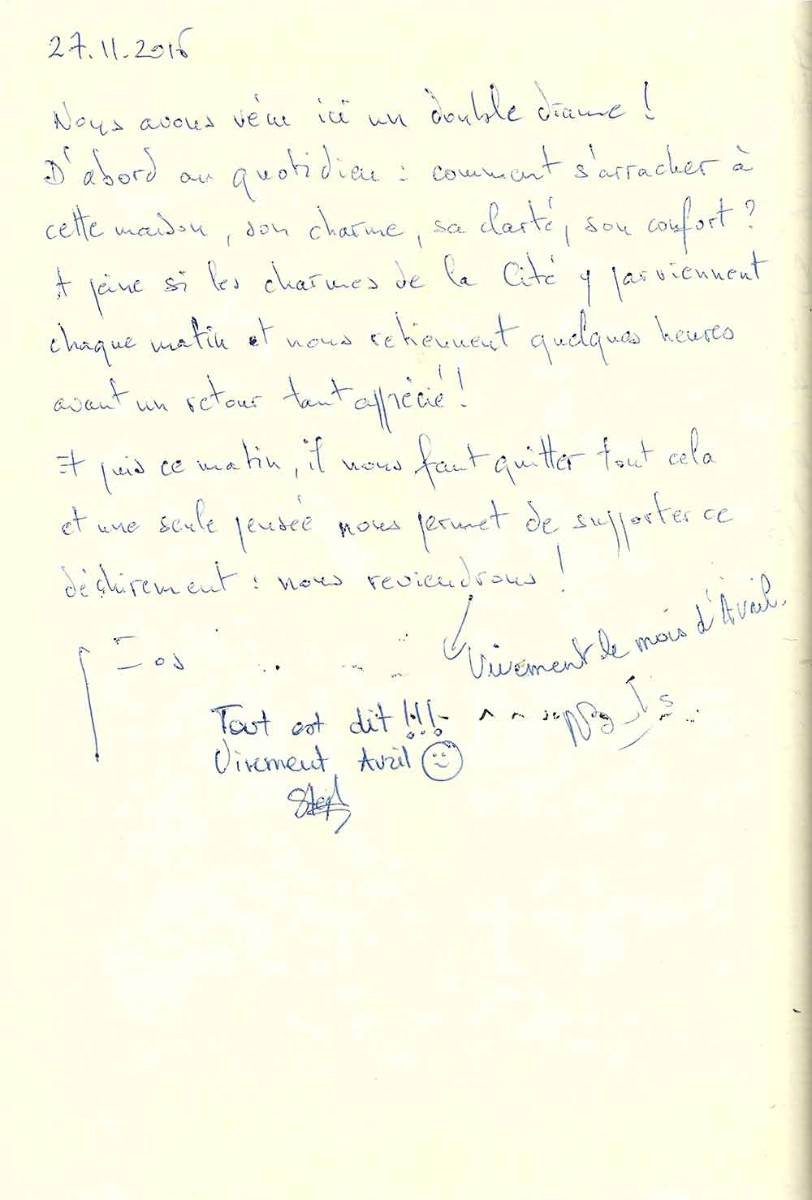 27.11.2016
Nous avons vécu ici un double drame !
D'abord au quotidien : comment s'arracher à
cette maison, son charme, sa clarté, son confort ?
A peine si les charmes de la Cité y parviennent
chaque matin et nous retiennent quelques heures
avant un retour tant apprécié !
Et puis ce matin, il nous faut quitter tout cela
et une seule pensée nous permet de supporter ce
déchirement : nous reviendrons !
Vivement le mois d'Avril.
Tout est dit !!!
Vivement Avril